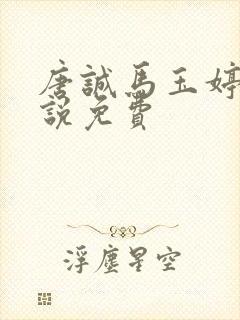 唐誠馬玉婷
說免費
浮塵星空